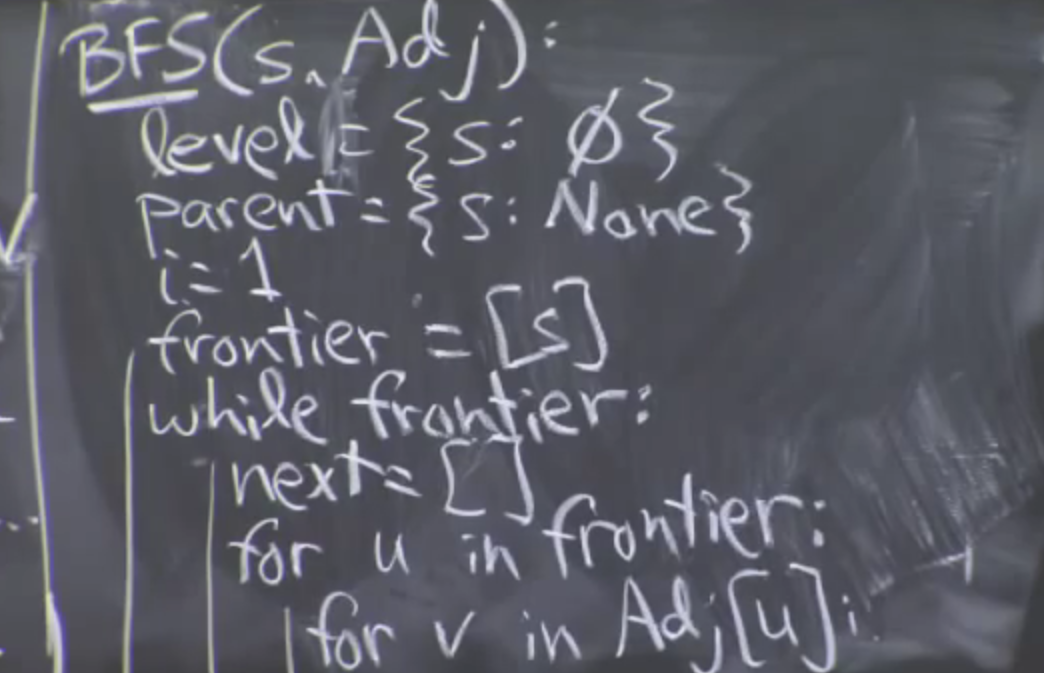 BFS(s, Adj):
level = {s: Ø}
parent = {s: None}
i = 1
frontier = [s]
while frontier:
next = [ ]
for u in frontier:
for v in Adj[u]: